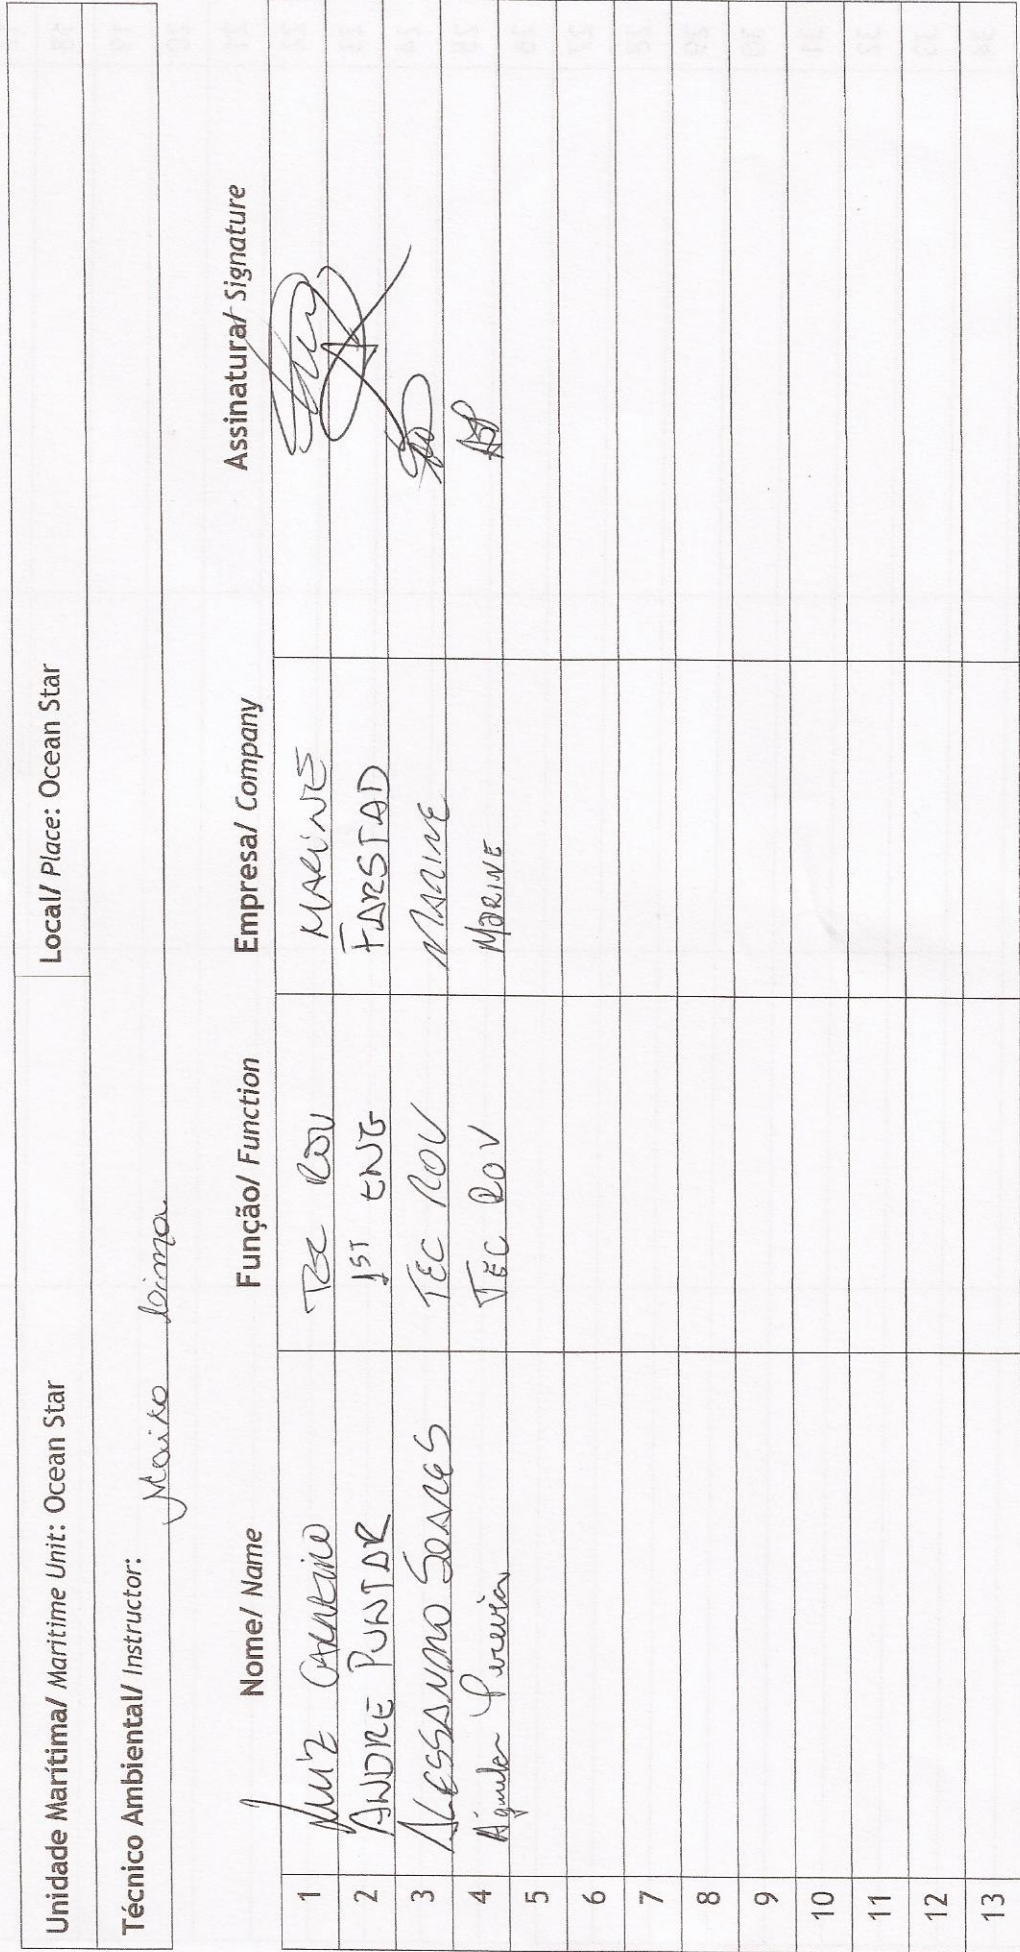 Unidade Marítima/ Maritime Unit: Ocean Star Local/ Place: Ocean Star
Técnico Ambiental/ Instructor: Maiko Lima
Nome/ Name Função/ Function Empresa/ Company Assinatura/ Signature
1 Luiz TEC ROV MARINE
2 ANDRE PUNTAR 1ST ENG FARSTAD
3 ALESSANDRO SOARES TEC ROV MARINE
4 Pereira TEC ROV MARINE
5
6
7
8
9
10
11
12
13